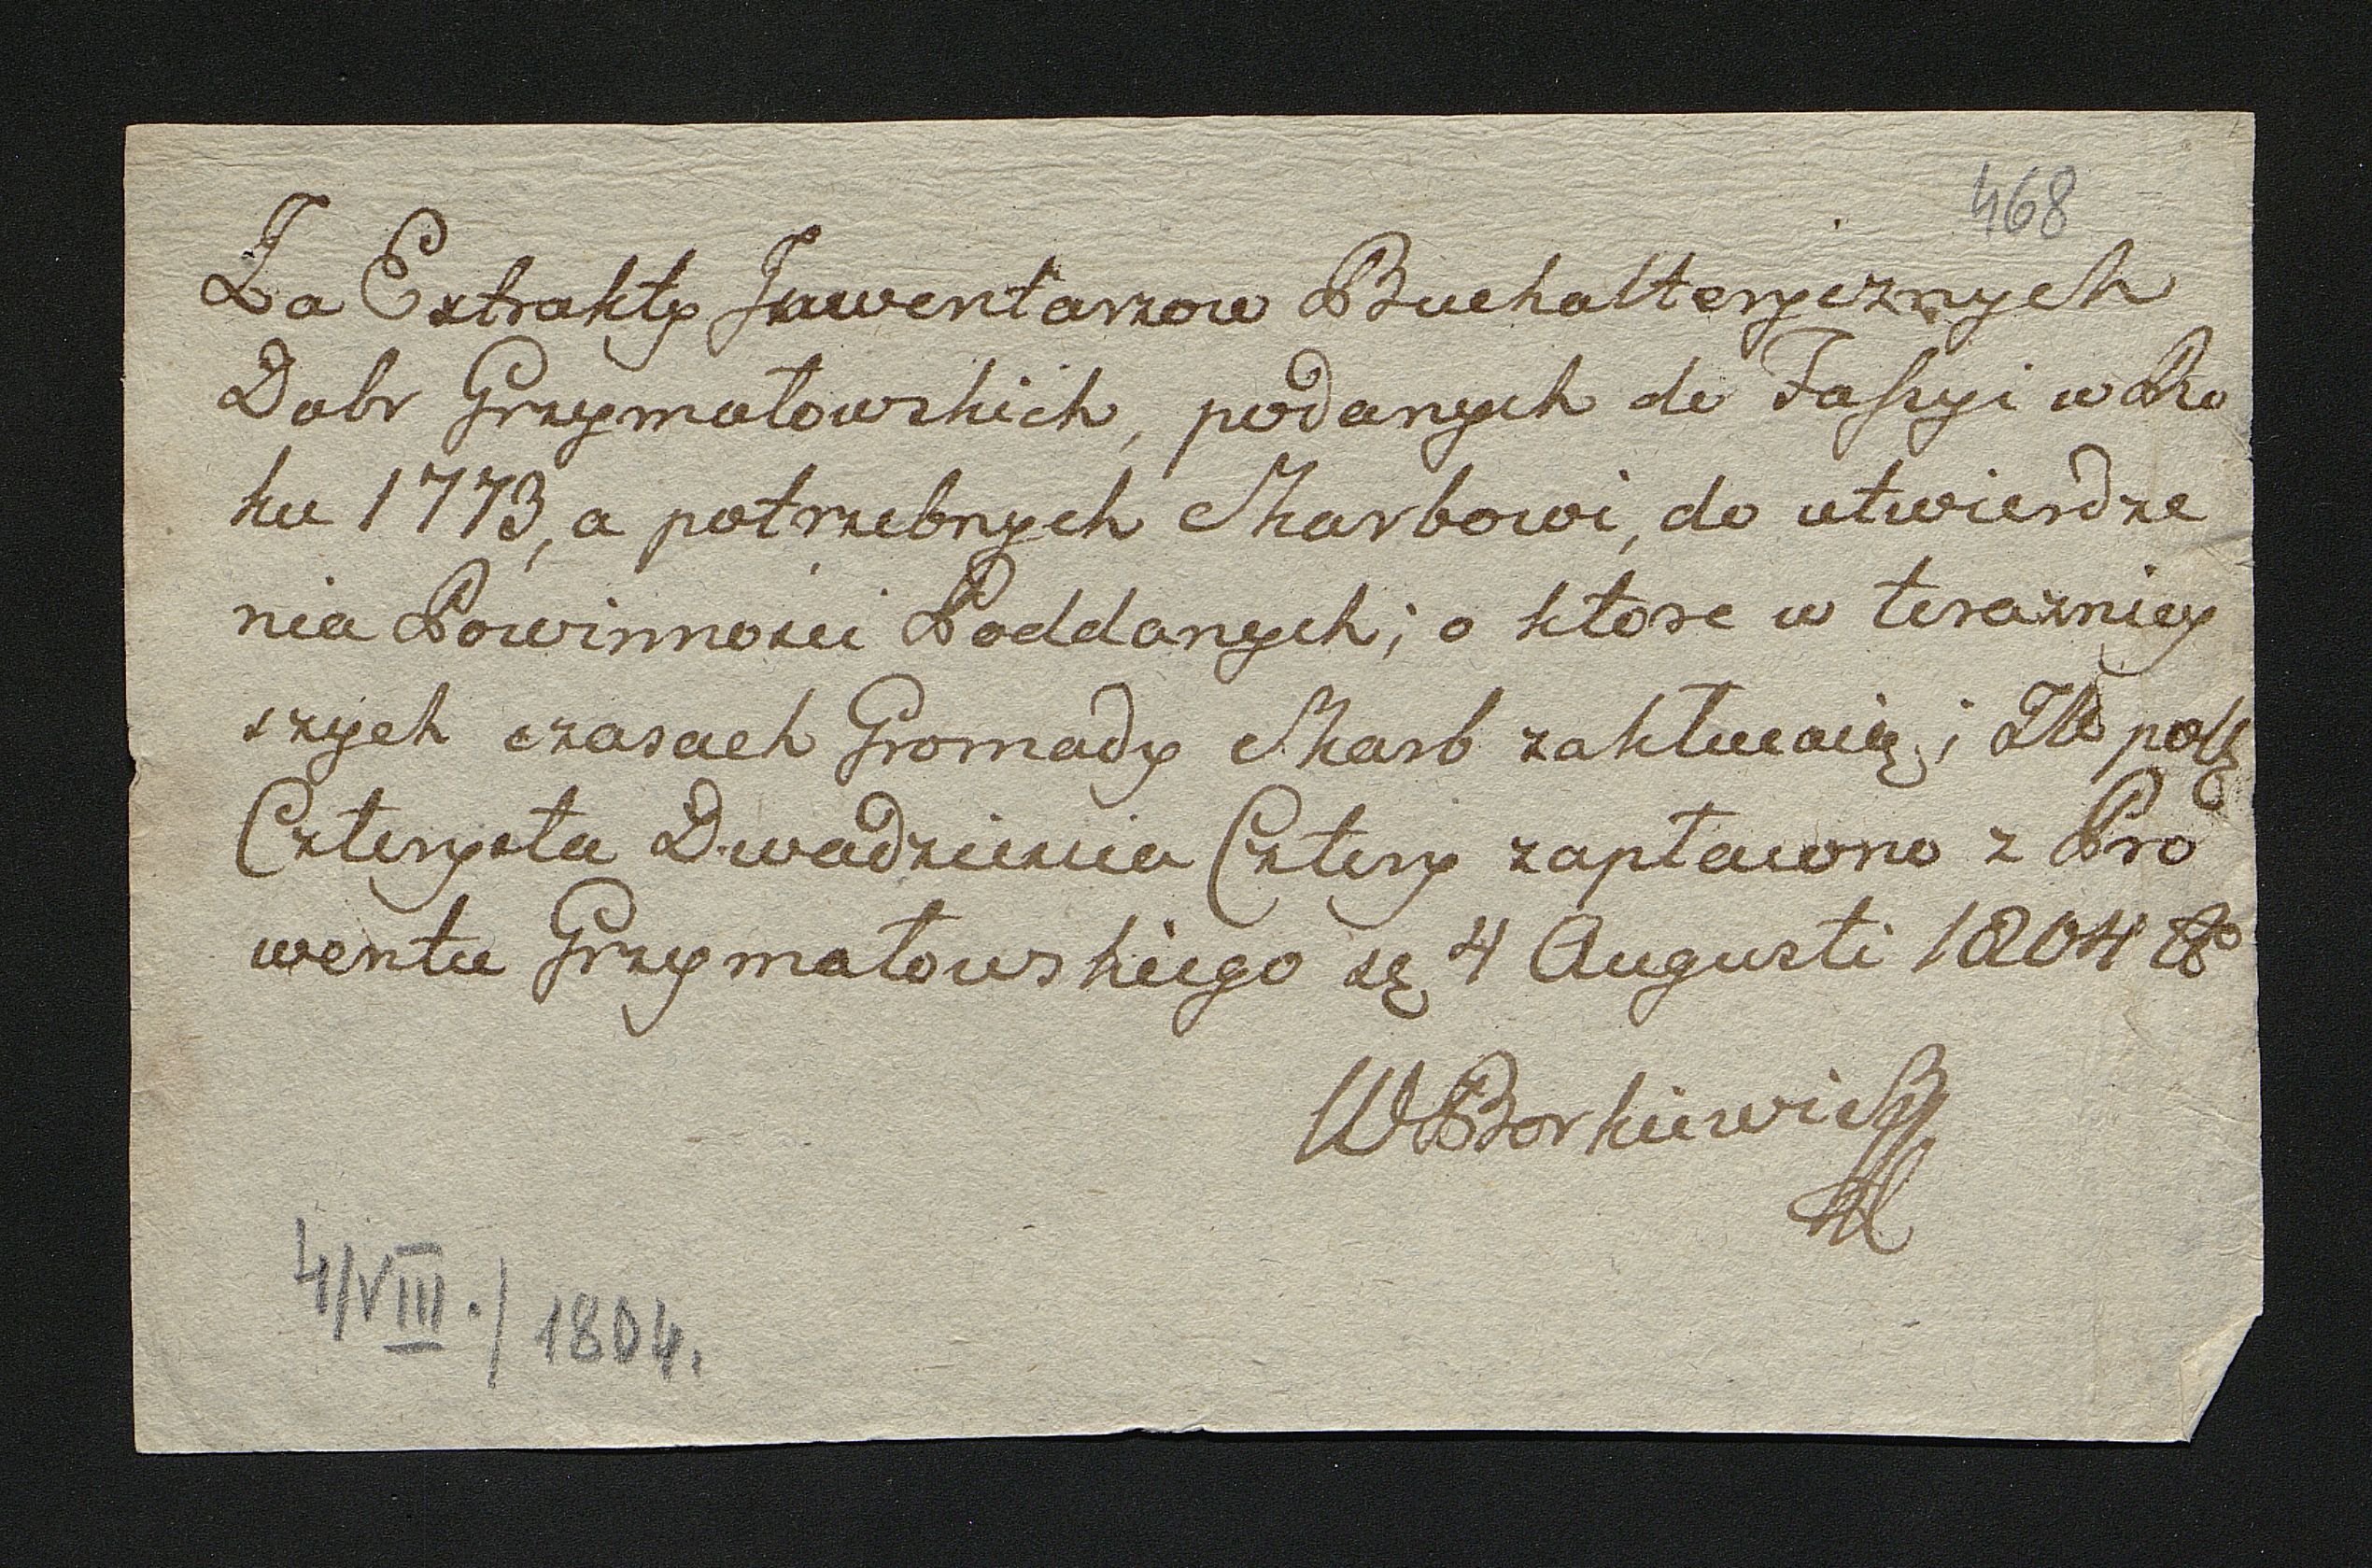 468
Za Extrakty Inwentarzow Buchalterycznych
Dobr Grzymałowskich, podanych do Fassyi w Ro
ku 1773, a potrzebnych Skarbowi, do utwierdze
nia Powinności Poddanych; o ktore w terazniey
szych czasach Gromady Skarb zakłucaią; Złł polł
Czterysta Dwadziescia Cztery zapłacono z Pro
wentu Grzymałowskiego
4 Augusti 1804
WBorkiewicz
4/VIII./1804.